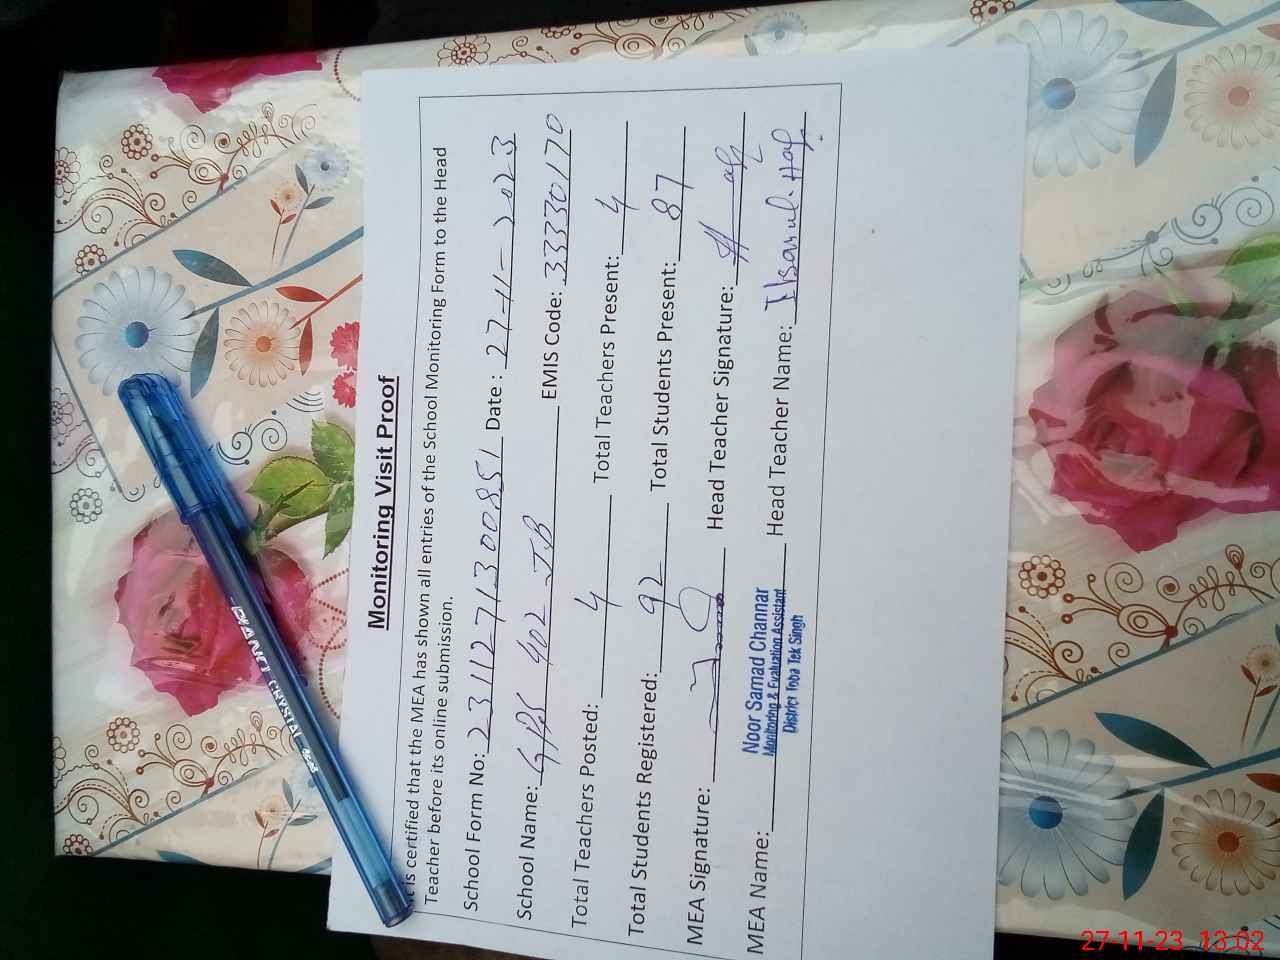 Monitoring Visit Proof
It is certified that the MEA has shown all entries of the School Monitoring Form to the Head
Teacher before its online submission.
School Form No: 2311271300851 Date : 27-11-2023
School Name: GPS 402 JB EMIS Code: 33330170
Total Teachers Posted: 4 Total Teachers Present: 4
Total Students Registered: 92 Total Students Present: 87
MEA Signature: Head Teacher Signature:
MEA Name: Noor Samad Channar Head Teacher Name: Ihsan ul Haq
Monitoring & Evaluation Assistant
District Toba Tek Singh
PIANO CRYSTAL
27-11-23 13:02